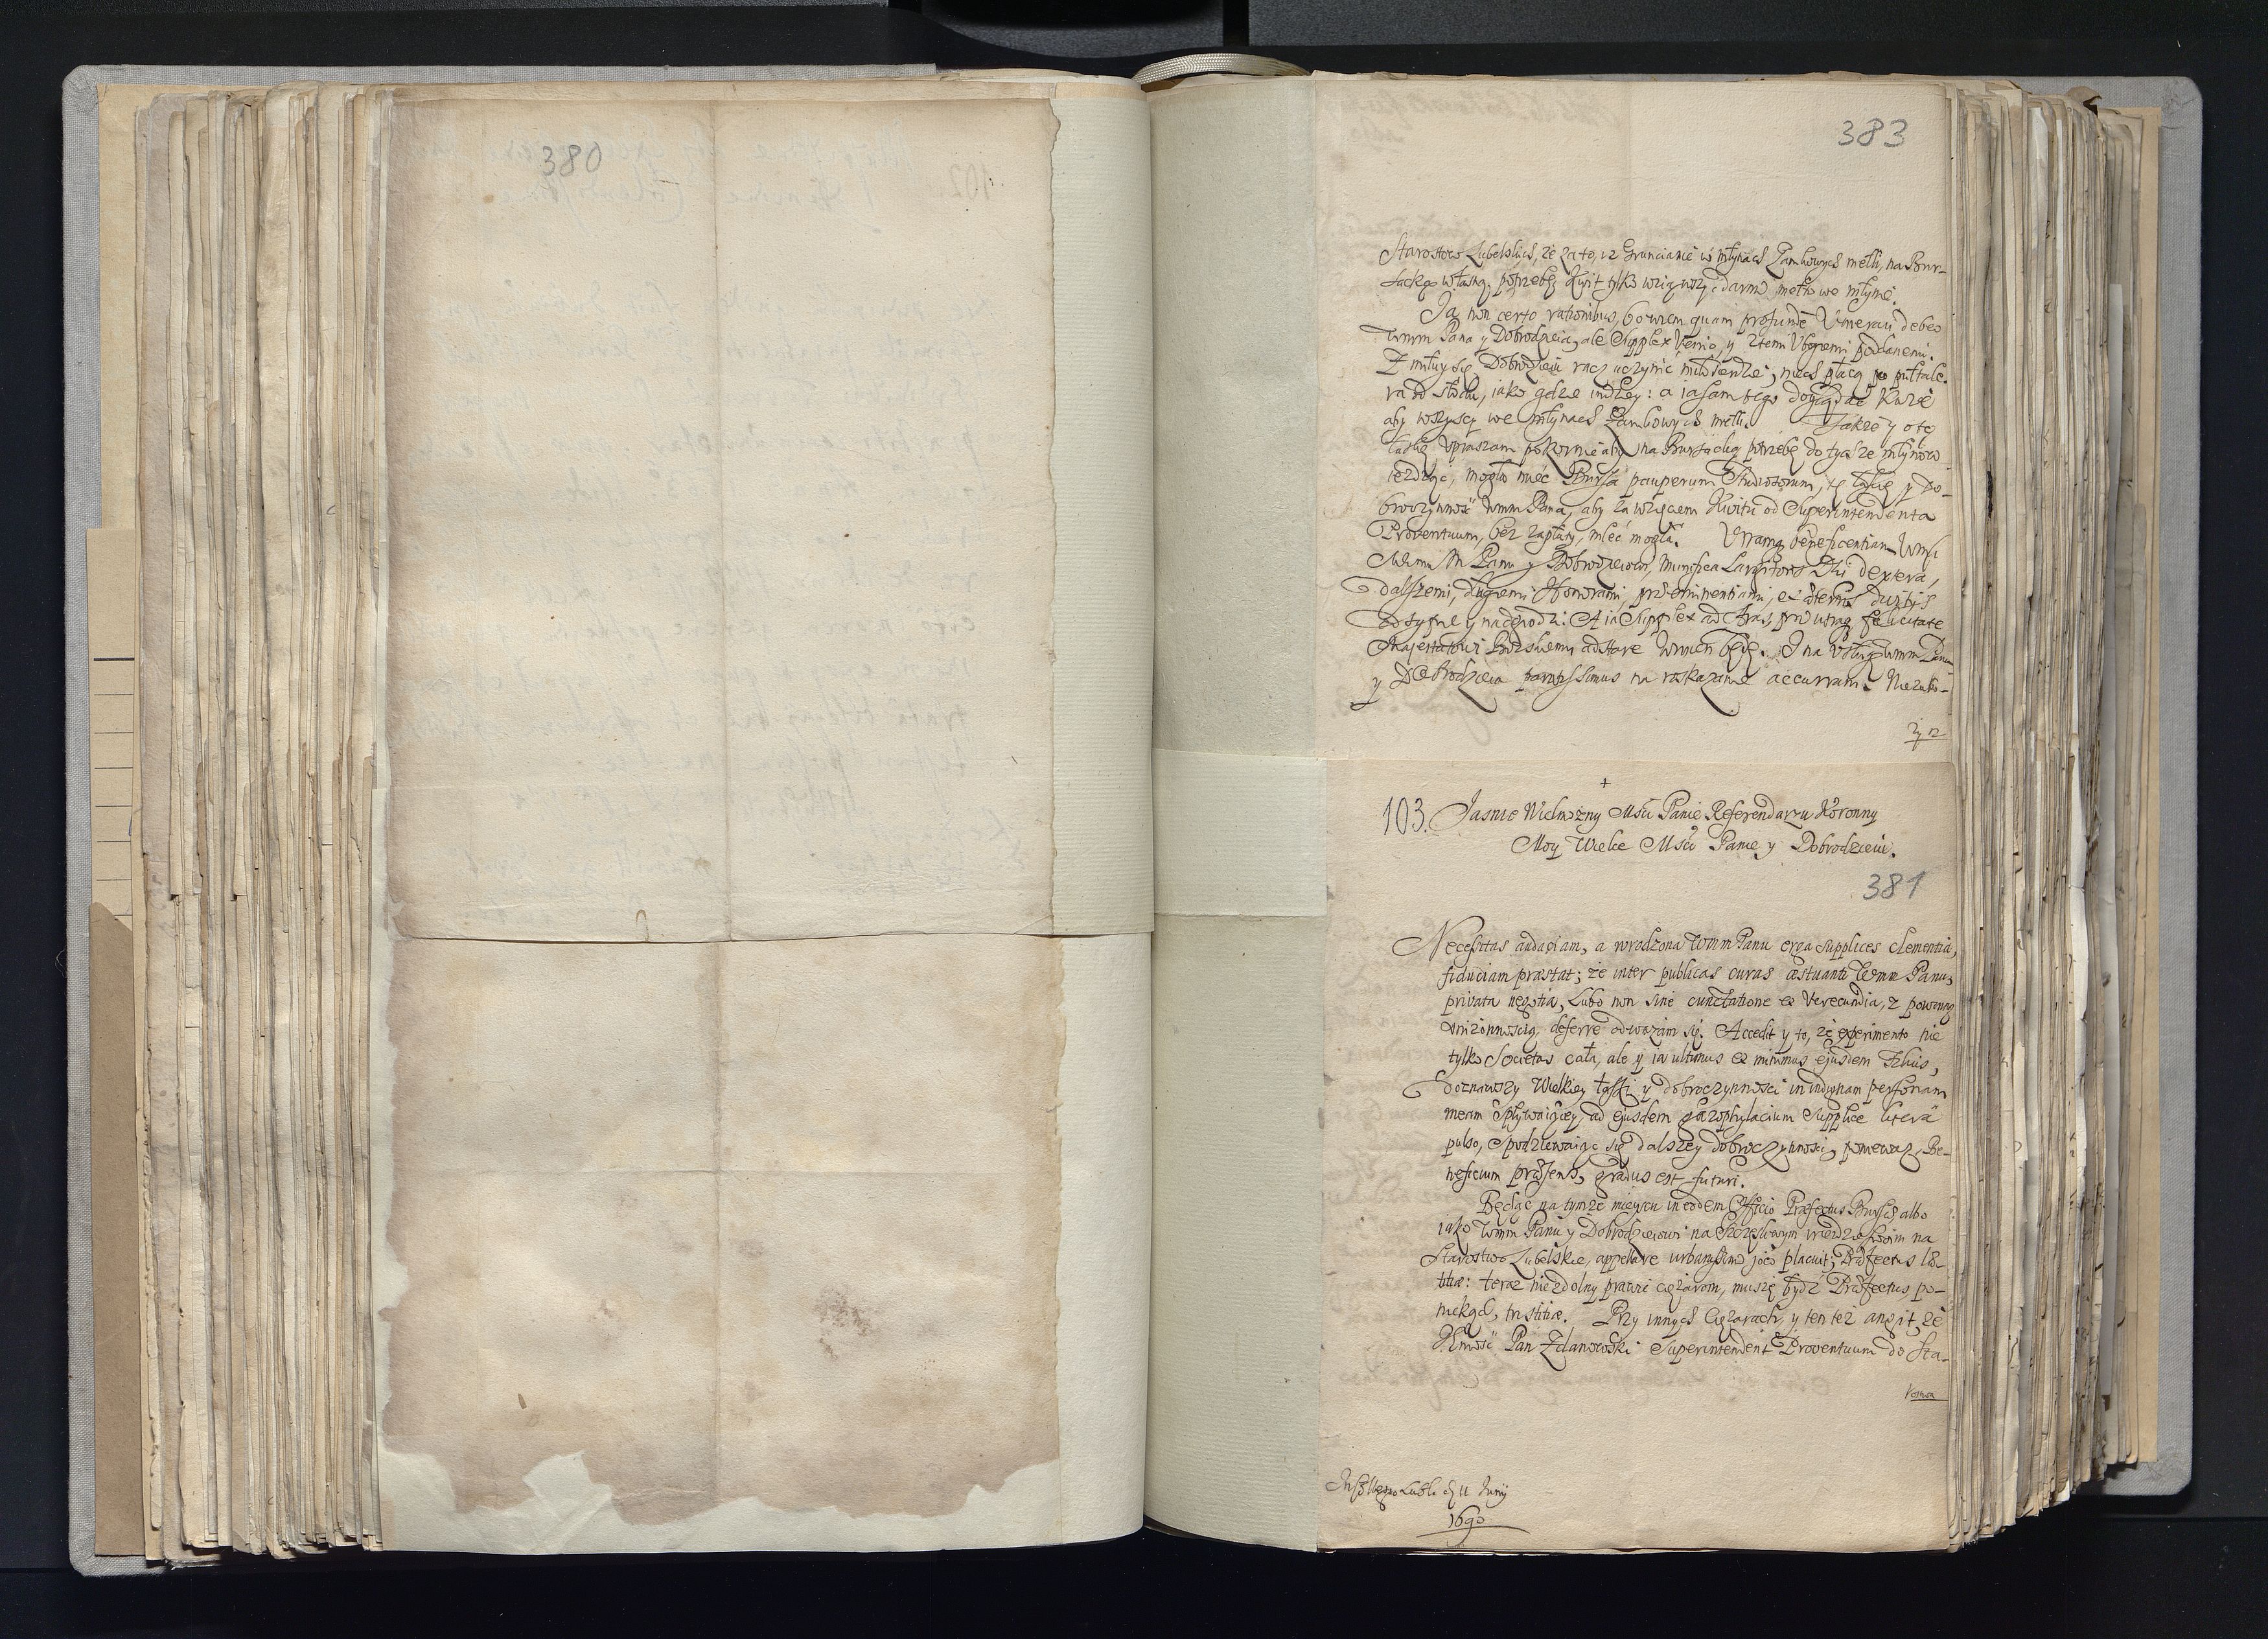 380
383
Starostwo Lubelskie, że za to, iż Gruncianie w młynach Zamkowych mełli, na Bur-
sackę własną potrzebę Kwit tylko wziąwszy darmo mełło we młynie.
Ja non certo rationibus, bowiem quam profunde Venerari debeo
Wmm Pana y Dobrodzieia, ale Supplex Venio, y z temi Vbogiemi poddanemi.
Zmiłuy się Dobrodzieiu racz uczynić miłosierdzie, niech płacą po pułtale-
ra od słodu, iako gdzie indzey: a ia sam tego doyżrzeć każę
aby wszyscy we młynach Zamkowych mełli. Także y o tę
łaskę vpraszam pokornie aby na Bursacką potrzebę do tychże młynów
ieżdżąc, mogła mieć Bursa pauperum Studiosorum, tę łaskę y do-
broczynność Wmm Pana, aby za wzięciem Kwitu od Superintendenta
Proventuum, bez zapłaty, mleć mogła. Vtramq beneficentiam Wmi
Memu M Panu y Dobrodzieiowi, munifica Largitoris Dei dextera,
dalszemi, długiemi Honorami, præeminentiami, et æternis divitijs
adsygnuie y nadgrodzi: A ia Supplex ad Aras, pro utraq felicitate
Majestatowi Boskiemu adstare Wmmch będę. I na vsługę Wmm Pana
y Dobrodzieia paratissimus na roskazanie accurram. Niezabi-
iay
+
103. Jasnie Wielmożny Mści Panie Referendarzu Koronny
Moy Wielce Mści Panie y Dobrodzieiu.
381
Necessitas audaciam, a wrodzona Wmm Panu erga supplices clementia,
fiduciam præstat; że inter publicas curas æstuanti Wmm Panu,
privata negotia, Lubo non sine cunctatione et Verecundia, z powinną
vniżonnością, deferre odważam się. Accedit y to, że experimento nie
tylko Societas cała, ale y ia ultimus et minimus ejusdem Filius,
doznawszy Wielkiey łaski y dobroczynności in indignam personam
meam spływaiącey, ad ejusdem gazophylacium supplice literâ
pulso, spodziewaiąc się dalszey dobroczynności, ponieważ, Be-
neficium præsens, gradus est futuri.
Będąc na tymże mieyscu in eodem Officio Præfectus Bursæ albo
iako Wmm Panu y Dobrodzieiowi na szczęśliwym wieździe swoim na
Starostwo Lubelskie, appellare urbanissimo joco placuit; Præfectus læ-
titiæ: teraz niezdolny prawie ciężarom, muszę bydź Præfectus po-
niekąd, tristitiæ. Przy innych Ciężarach, y ten też angit, że
JEmość Pan Zdanowski Superintendent Proventuum do Sta-
rostwa
In Collegio Lubli d 11 Junij
1690